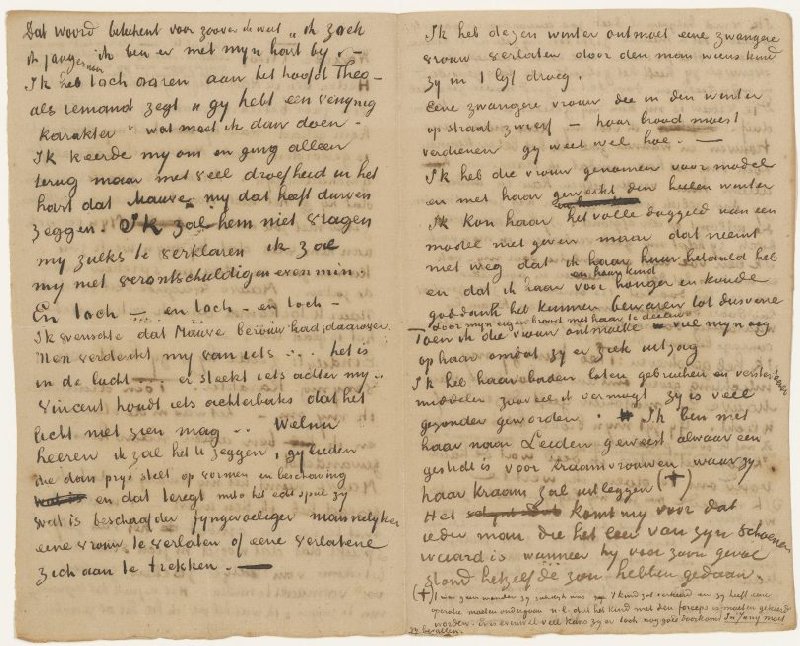 Dat woord beteekent voor zoover ik weet „ ik zoek
ik jaag er naar ik ben er met myn hart by. –
Ik heb toch ooren aan het hoofd Theo –
als iemand zegt „ gy hebt een venynig
karakter " wat moet ik dan doen –
Ik keerde my om en ging alleen
terug maar met veel droefheid in het
hart dat Mauve my dat heeft durven
zeggen. Ik zal hem niet vragen
my zulks te verklaren ik zal
my niet verontschuldigen evenmin.
En toch – en toch – en toch –
Ik wenschte dat Mauve berouw had daarover.
Men verdenkt my van iets ... het is
in de lucht — er steekt iets achter my ..
Vincent houdt iets achterbaks dat het
licht niet zien mag .. Welnu
heeren ik zal het U zeggen, gy lieden
die doin prys stelt op vormen en beschaving
en dat teregt mits het echt spul zy
wat is beschaafder fyngevoeliger mannelyker
eene vrouw te verlaten of eene verlatene
zich aan te trekken. —
Ik heb dezen winter ontmoet eene zwangere
vrouw verlaten door den man wiens kind
zy in 't lyf droeg.
Eene zwangere vrouw die in den winter
op straat zwierf – haar brood moest
verdienen gy weet wel hoe. —
Ik heb die vrouw genomen voor model
en met haar gewerkt den heelen winter
Ik kon haar het volle daggeld van een
model niet geven maar dat neemt
niet weg dat ik haar huur betaald heb
en dat ik haar en haar kind voor honger en koude
goddank het kunnen bewaren tot dusverre
door myn eigen brood met haar te deelen.
Toen ik die vrouw ontmoette – viel myn oog
op haar omdat zy er ziek uitzag
Ik heb haar baden laten gebruiken en versterkende
middelen zooveel ik vermogt zy is veel
gezonder geworden. Ik ben met
haar naar Leiden geweest alwaar een
gesticht is voor kraamvrouwen waar zy
haar kraam zal uitleggen (+)
Het komt my voor dat
ieder man die het leer van zyn schoenen
waard is wanneer hy voor zoon geval
stond hetzelfde zou hebben gedaan.
(+) t was geen wonder zy ziekelyk was 't kind zat verkeerd en zy heeft eene
operatie moeten ondergaan n.l. dat het kind met den forceps is moeten gekeerd
worden. Er is evenwel veel kans zy er toch nog goed doorkomt In Juny moet
zy bevallen.